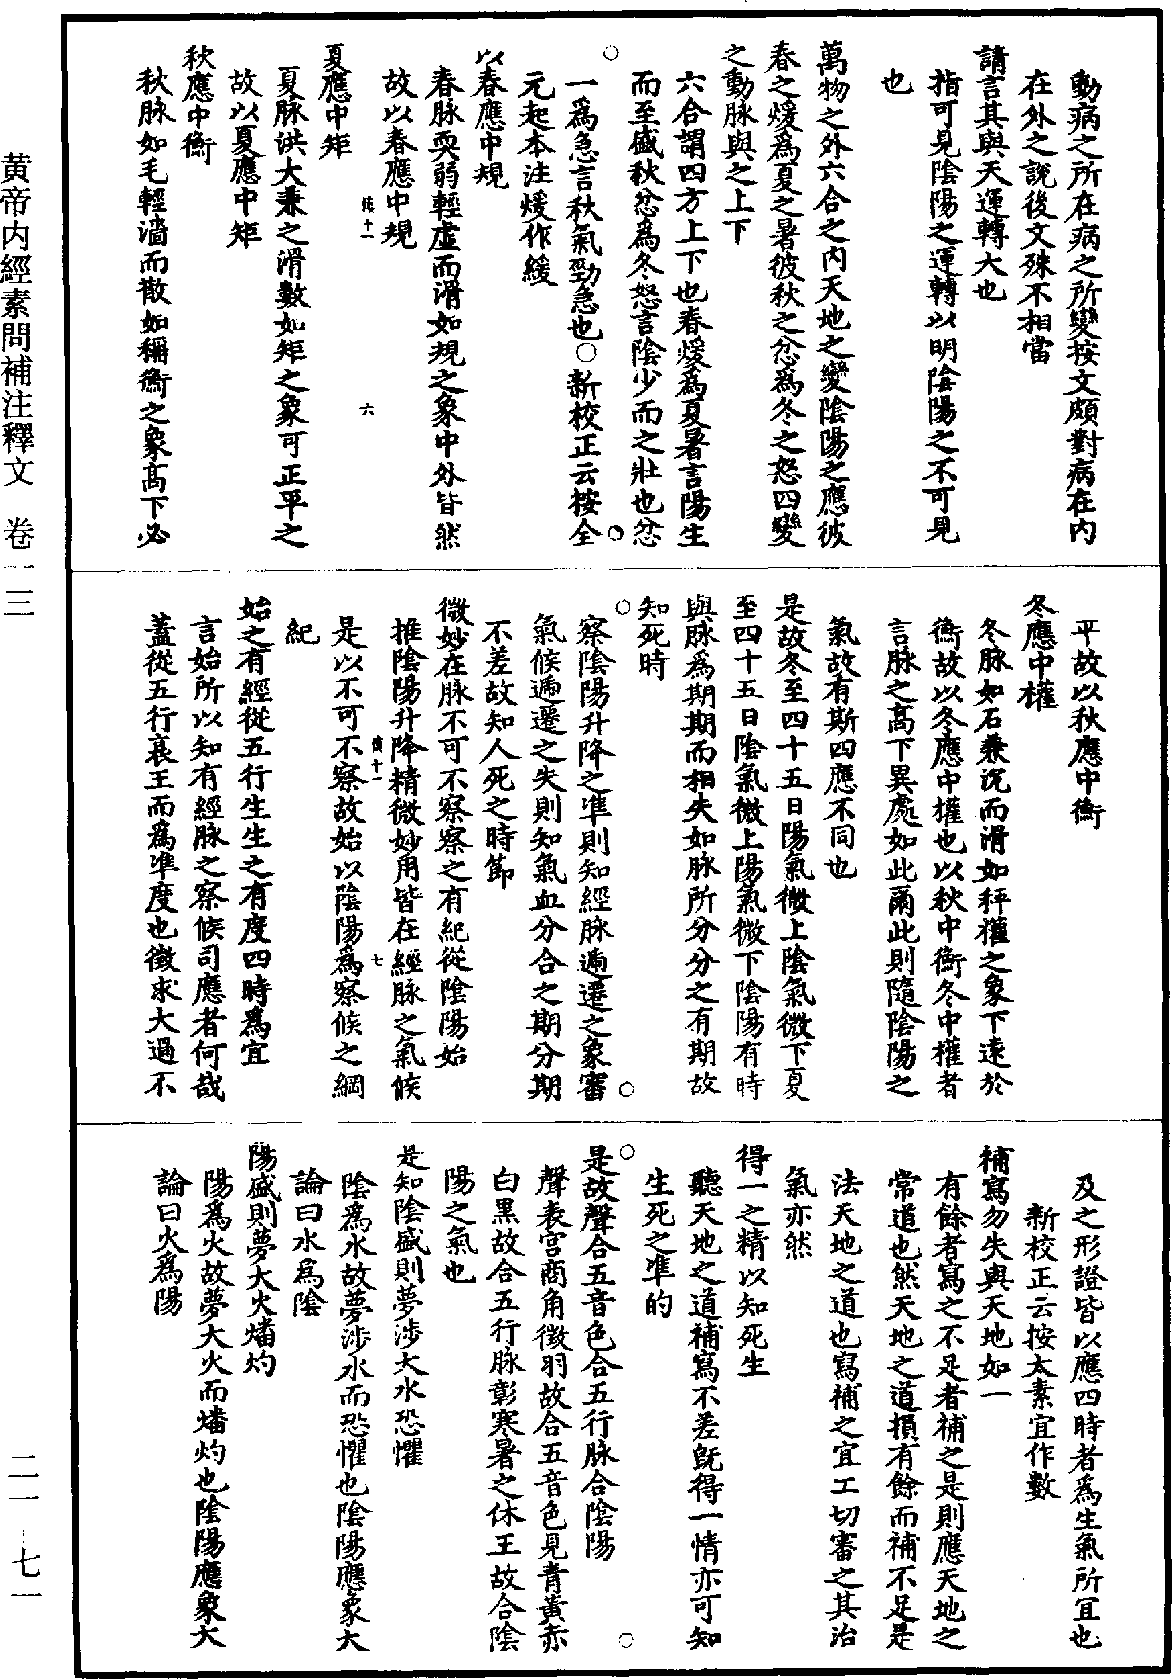 動病之所在病之所變按文頗對病在内
在外之說後文殊不相當
請言其與天運轉大也
指可見陰陽之運轉以明陰陽之不可見
也
萬物之外六合之内天地之變陰陽之應彼
春之煖爲夏之暑彼秋之忿爲冬之怒四變
之動脉與之上下
六合謂四方上下也春煖爲夏暑言陽生
而至盛秋忿爲冬怒言陰少而之壯也忿
一爲急言秋氣勁急也○新校正云按全
元起本注煖作緩
以春應中規
春脉耎弱輕虛而滑如規之象中外皆然
故以春應中規
夏應中矩
夏脉洪大兼之滑數如矩之象可正平之
故以夏應中矩
秋應中衡
秋脉如毛輕濇而散如稱衡之象高下必
平故以秋應中衡
冬應中權
冬脉如石兼沉而滑如秤權之象下遠於
衡故以冬應中權也以秋中衡冬中權者
言脉之高下異處如此爾此則隨陰陽之
氣故有斯四應不同也
是故冬至四十五日陽氣微上陰氣微下夏
至四十五日陰氣微上陽氣微下陰陽有時
與脉爲期期而相失如脉所分分之有期故
知死時
察陰陽升降之準則知經脉遞遷之象審
氣候遞遷之失則知氣血分合之期分期
不差故知人死之時節
微妙在脉不可不察察之有紀從陰陽始
推陰陽升降精微妙用皆在經脉之氣候
是以不可不察故始以陰陽爲察候之綱
紀
始之有經從五行生生之有度四時爲宜
言始所以知有經脉之察候司應者何哉
蓋從五行衰王而爲準度也徵求大過不
及之形證皆以應四時者爲生氣所宜也
新校正云按太素宜作數
補寫勿失與天地如一
有餘者寫之不足者補之是則應天地之
常道也然天地之道損有餘而補不足是
法天地之道也寫補之宜工切審之其治
氣亦然
得一之精以知死生
聽天地之道補寫不差既得一情亦可知
生死之準的
是故聲合五音色合五行脉合陰陽
聲表宮商角徵羽故合五音色見青黃赤
白黑故合五行脉彰寒暑之休王故合陰
陽之氣也
是知陰盛則夢涉大水恐懼
陰爲水故夢涉水而恐懼也陰陽應象大
論曰水爲陰
陽盛則夢大火燔灼
陽爲火故夢大火而燔灼也陰陽應象大
論曰火爲陽
黄帝内經素問補注釋文　卷一三
二一　七一